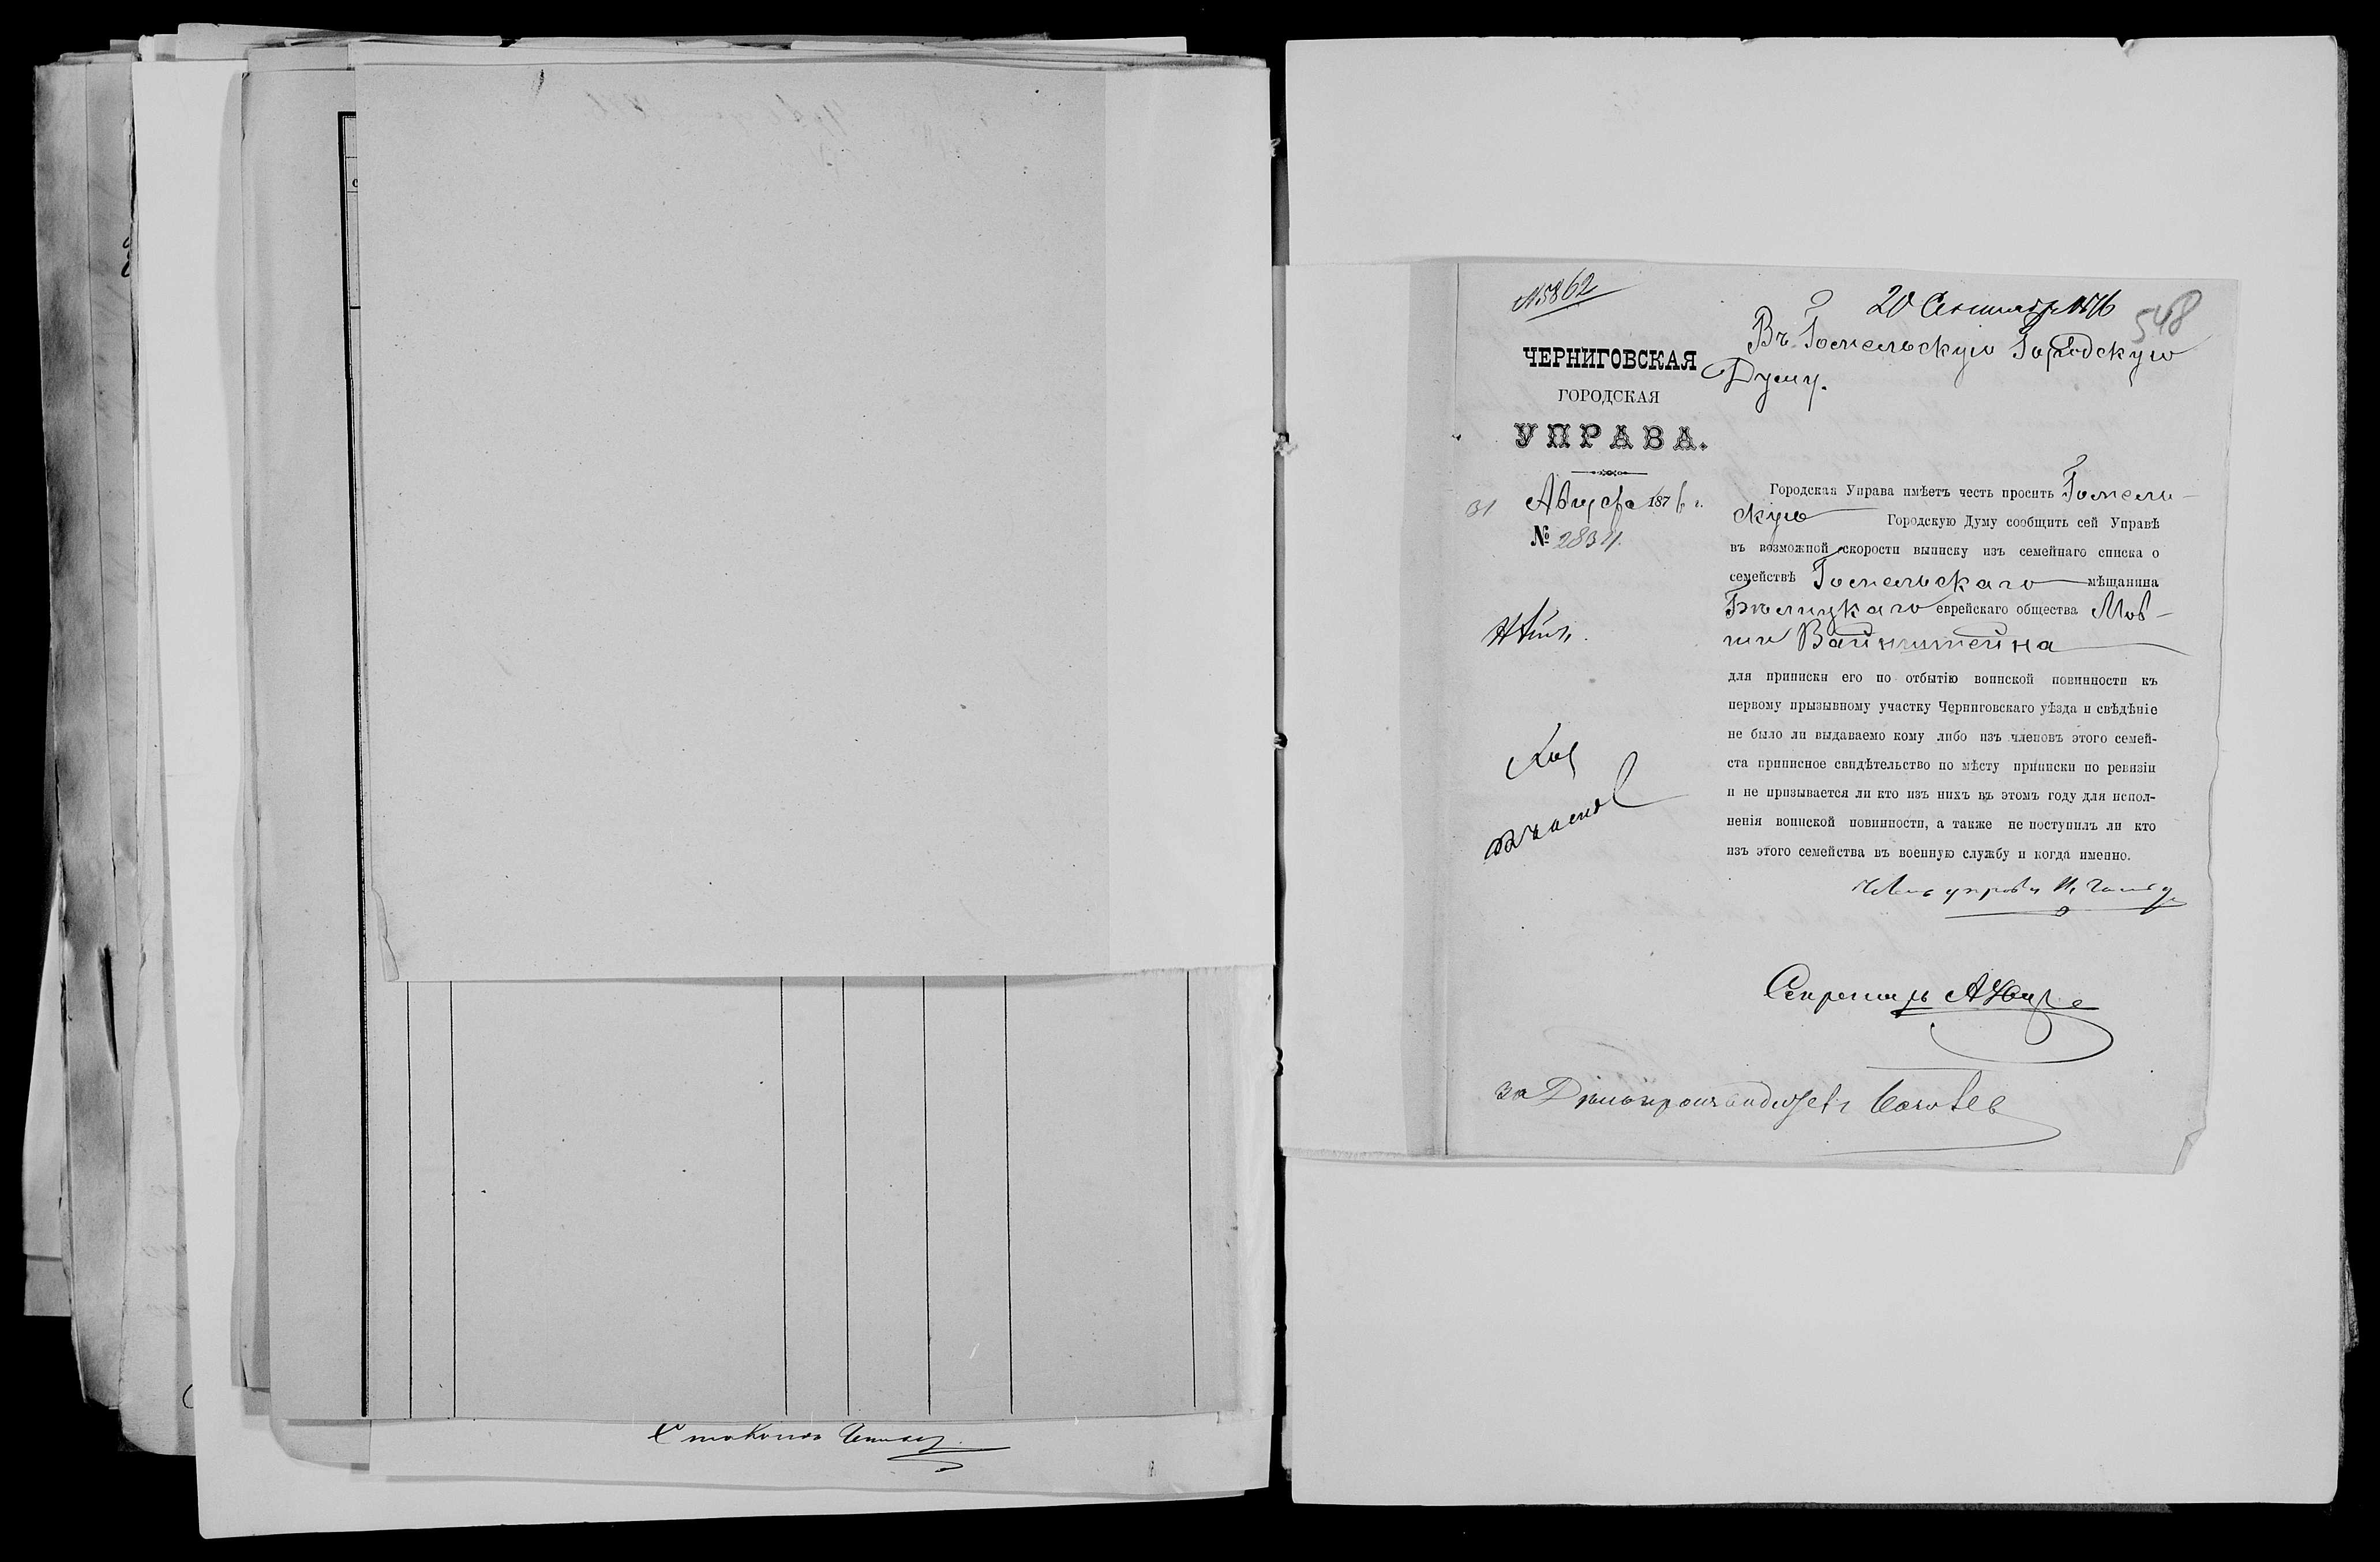 №5862
20 Сентября 1876
548
Въ Гомельскую Городскую
Думу.
ЧЕРНИГОВСКАЯ
ГОРОДСКАЯ
УПРАВА.
31 Августа 1876 г.
№ 2834.
Городская Управа имѣетъ честь просить Гомель-
скую Городскую Думу сообщить сей Управѣ
въ возможной скорости выписку изъ семейнаго списка о
семействѣ Гомельскаго мѣщанина
Бѣлицкаго еврейскаго общества Мов-
ши Вайнштейна
для приписки его по отбытію воинской повинности къ
первому призывному участку Черниговскаго уѣзда и свѣдѣніе
не было ли выдаваемо кому либо изъ членовъ этого семей-
ста приписное свидѣтельство по мѣсту приписки по ревизіи
и не призывается ли кто изъ нихъ въ этомъ году для испол-
ненія воинской повинности, а также не поступилъ ли кто
изъ этого семейства въ военную службу и когда именно.
Членъ управы
Секретарь
За Дѣлопроизводителя